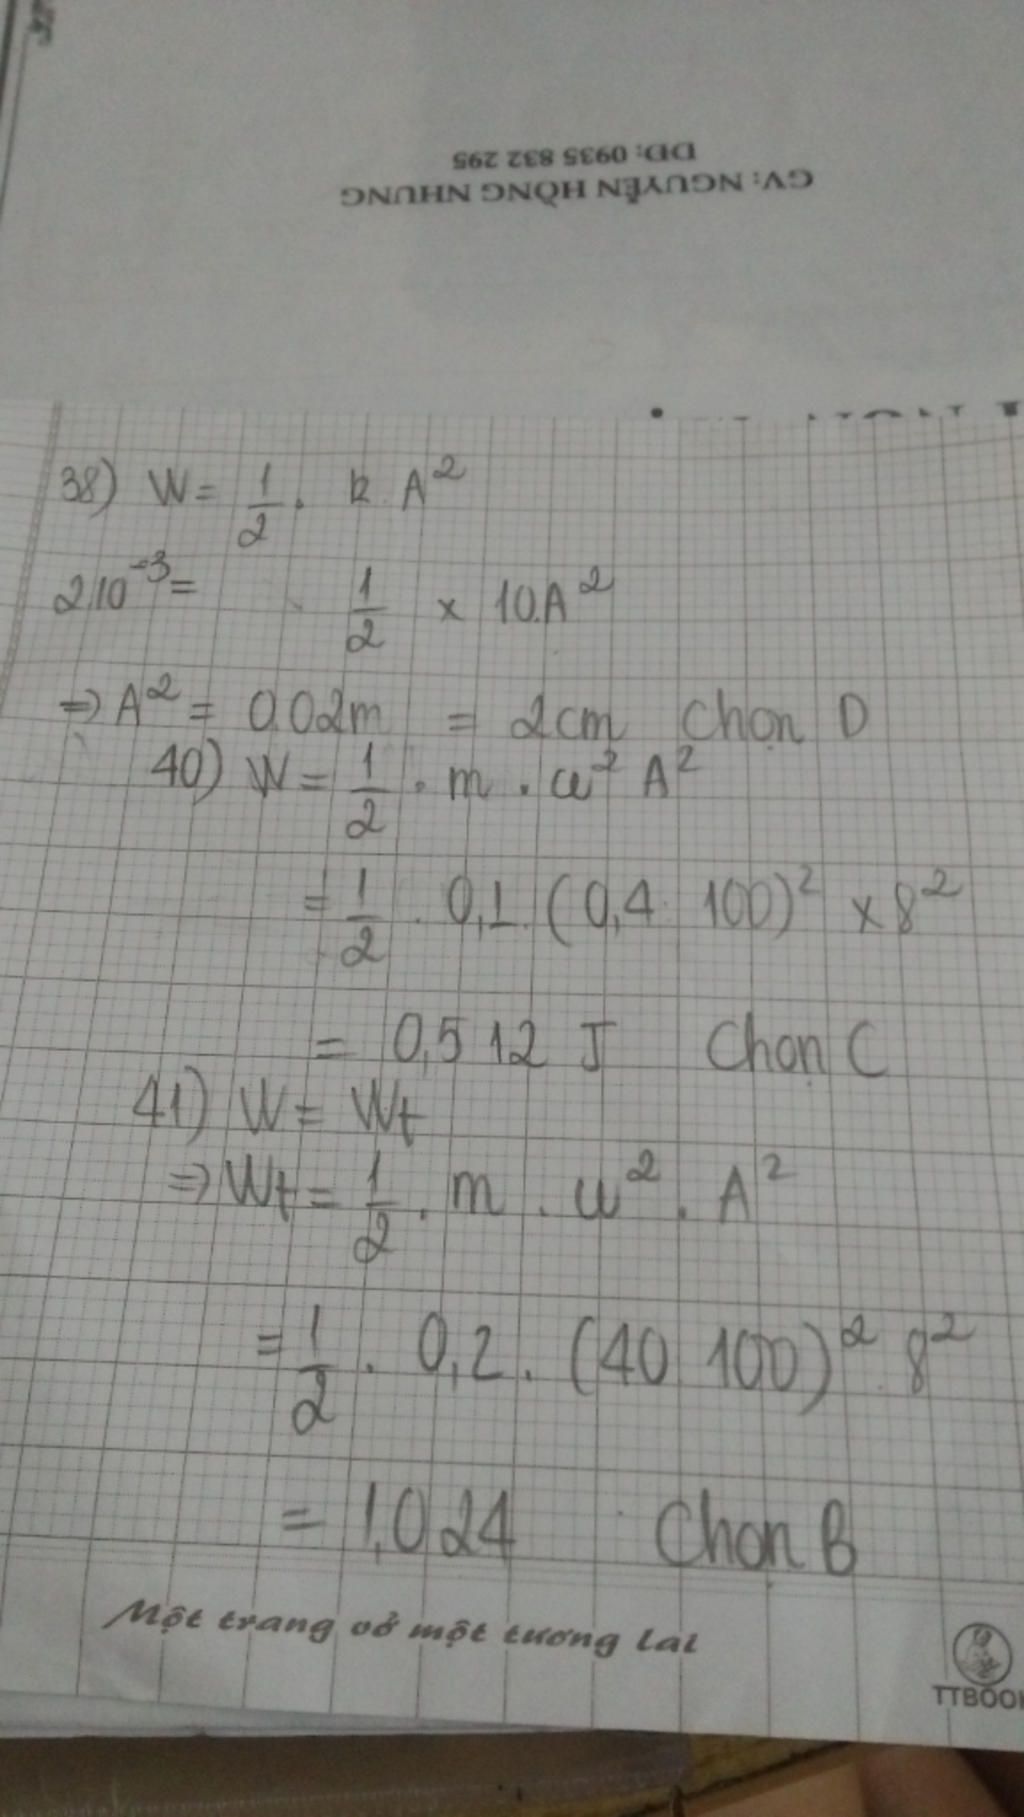 GV: NGUYỄN HỒNG NHUNG
DĐ: 0935 832 295
38) W = 1/2 . k A²
2.10⁻³ = 1/2 x 10.A²
⇒ A² = 0,02m = 2cm Chọn D
40) W = 1/2 . m . ω² A²
= 1/2 . 0,1. (0,4 100)² x 8²
= 0,512 J Chọn C
41) W = Wt
⇒ Wt = 1/2 . m . ω² . A²
= 1/2 . 0,2 . (40 100)² 8²
= 1,024 Chọn B
Một trang vở một tương lai